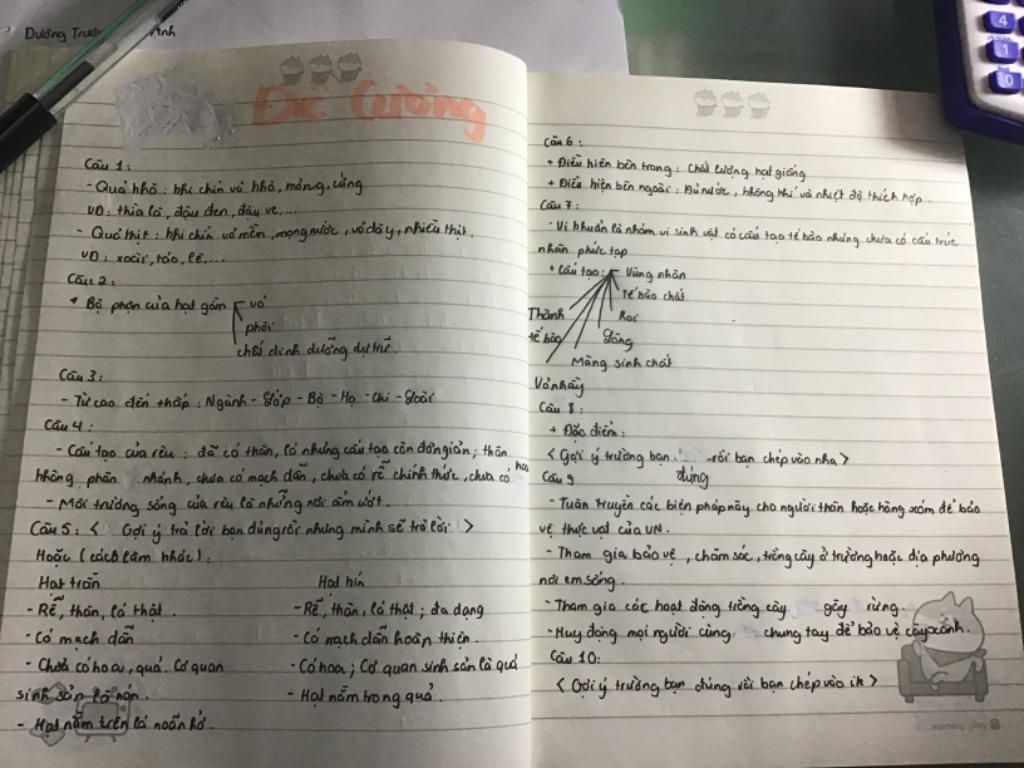 Dương Trươ
Anh
Đề Cương
Câu 1:
- Quả khô: khi chín vỏ khô, mỏng, cứng
VD: thìa là, đậu đen, đậu ve,...
- Quả thịt: khi chín vỏ mền, mọng nước, vỏ dày, nhiều thịt.
VD: xoài, táo, lê,...
Câu 2:
+ Bộ phận của hạt gồm vỏ
phôi
chất dinh dưỡng dự trữ.
Câu 3:
- Từ cao đến thấp: Ngành - Lớp - Bộ - Họ - Chi - Loài
Câu 4:
- Cấu tạo của rêu: đã có thân, lá nhưng cấu tạo còn đơn giản; thân
không phân nhánh, chưa có mạch dẫn, chưa có rễ chính thức, chưa có hoa
- Môi trường sống của rêu là những nơi ẩm ướt.
Câu 5: < Gợi ý trả lời bạn đúng rồi nhưng mình sẽ trả lời >
Hoặc (cách làm khác):
Hạt trần Hạt kín
- Rễ, thân, lá thật. - Rễ, thân, lá thật; đa dạng
- Có mạch dẫn - Có mạch dẫn hoàn thiện.
- Chưa có hoa, quả. Cơ quan - Có hoa; Cơ quan sinh sản là quả
sinh sản là nón. - Hạt nằm trong quả.
- Hạt nằm trên lá noãn hở.
Câu 6:
+ Điều kiện bên trong: Chất lượng hạt giống
+ Điều kiện bên ngoài: Đủ nước, không khí và nhiệt độ thích hợp.
Câu 7:
- Vi khuẩn là nhóm vi sinh vật có cấu tạo tế bào nhưng chưa có cấu trúc
nhân phức tạp
+ Cấu tạo: Vùng nhân
Tế bào chất
Thành Roi
tế bào Lông
Màng sinh chất
Vỏ nhầy
Câu 8:
+ Đặc điểm:
< Gợi ý trường bạn đúng rồi bạn chép vào nha >
Câu 9
- Tuân truyền các biện pháp này cho người thân hoặc hàng xóm để bảo
vệ thực vật của VN.
- Tham gia bảo vệ, chăm sóc, trồng cây ở trường hoặc địa phương
nơi em sống.
- Tham gia các hoạt động trồng cây gây rừng.
- Huy động mọi người cùng chung tay để bảo vệ cây xanh.
Câu 10:
< Gợi ý trường bạn đúng rồi bạn chép vào ik >
4
1
0